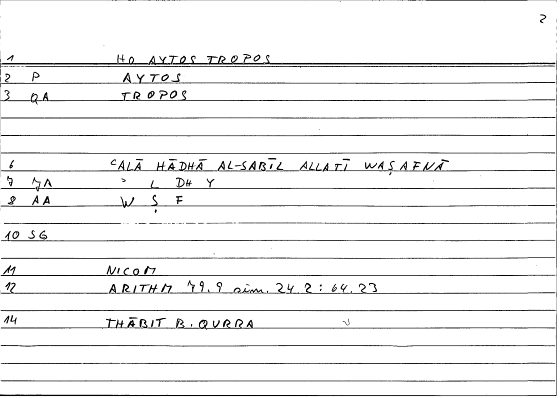 2
1 HO AYTOS TROPOS
2 P AYTOS
3 QA TROPOS
6 ʿALĀ HĀDHĀ AL-SABĪL ALLATĪ WAṢAFNĀ
7 JA ʾ L DH Y
8 AA W Ṣ F
10 SG
11 NICOM
12 ARITHM 79.9 sim. 24.2 : 64.23
14 THĀBIT B. QURRA